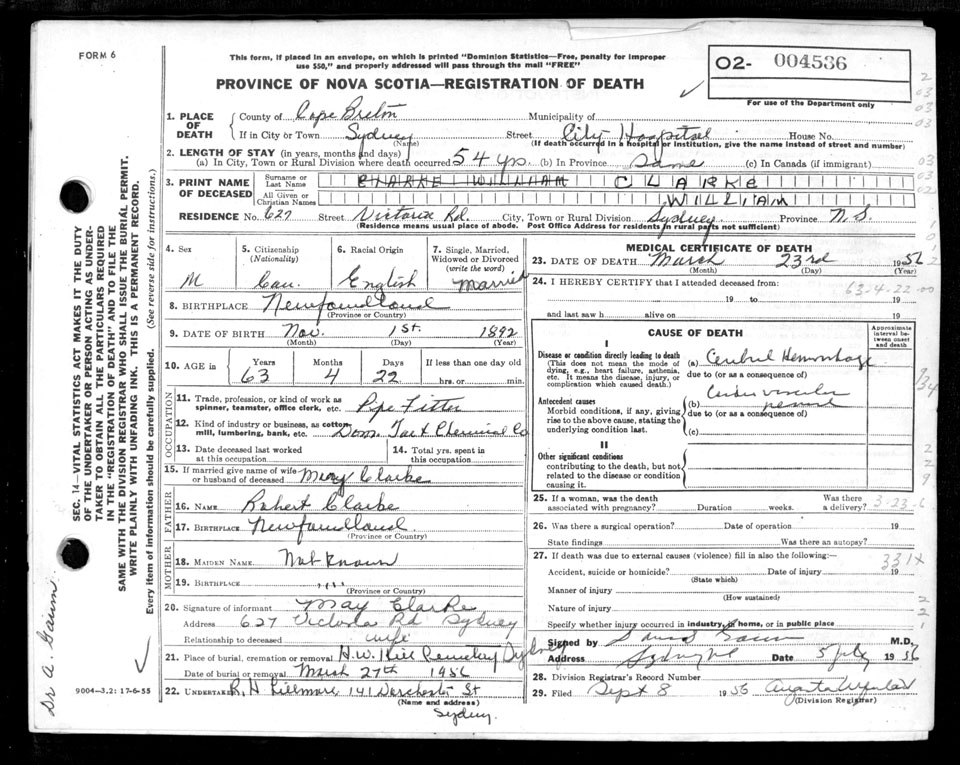 FORM 6
This form, if placed in an envelope, on which is printed "Dominion Statistics—Free, penalty for improper
use $50," and properly addressed will pass through the mail "FREE"
O2- 004536
For use of the Department only
PROVINCE OF NOVA SCOTIA—REGISTRATION OF DEATH
1. PLACE OF DEATH
County of Cape Breton Municipality of
If in City or Town Sydney (Name) Street City Hospital House No.
(If death occurred in a hospital or institution, give the name instead of street and number)
2. LENGTH OF STAY (in years, months and days)
(a) In City, Town or Rural Division where death occurred 54 yrs. (b) In Province Same (c) In Canada (if immigrant)
3. PRINT NAME OF DECEASED
Surname or Last Name CLARKE WILLIAM CLARKE
All Given or Christian Names WILLIAM
RESIDENCE No. 627 Street Victoria Rd. City, Town or Rural Division Sydney Province N.S.
(Residence means usual place of abode. Post Office Address for residents in rural parts not sufficient)
4. Sex M
5. Citizenship (Nationality) Can.
6. Racial Origin English
7. Single, Married, Widowed or Divorced (write the word) Married
8. BIRTHPLACE Newfoundland
(Province or Country)
9. DATE OF BIRTH Nov. 1st. 1892
(Month) (Day) (Year)
10. AGE in Years 63 Months 4 Days 22 If less than one day old hrs. or min.
OCCUPATION
11. Trade, profession, or kind of work as
spinner, teamster, office clerk, etc. Pipe Fitter
12. Kind of industry or business, as cotton
mill, lumbering, bank, etc. Dom. Tar & Chemical Co
13. Date deceased last worked at this occupation
14. Total yrs. spent in this occupation
15. If married give name of wife
or husband of deceased May Clarke
FATHER
16. NAME Robert Clarke
17. BIRTHPLACE Newfoundland
(Province or Country)
MOTHER
18. MAIDEN NAME Not Known
19. BIRTHPLACE
(Province or Country)
20. Signature of informant May Clarke
Address 627 Victoria Rd Sydney
Relationship to deceased wife
21. Place of burial, cremation or removal Cemetery Sydney
Date of burial or removal March 27th 1956
22. UNDERTAKER R H Lillmore 141 Dorchester St
(Name and address)
Sydney.
MEDICAL CERTIFICATE OF DEATH
23. DATE OF DEATH March 23rd 1956
(Month) (Day) (Year)
24. I HEREBY CERTIFY that I attended deceased from:
63-4-22
19 to 19
and last saw h alive on 19
CAUSE OF DEATH
Approximate interval between onset and death
I
Disease or condition directly leading to death
(This does not mean the mode of
dying, e.g., heart failure, asthenia,
etc. It means the disease, injury, or
complication which caused death.)
(a) Cerebral Hemorrhage
due to (or as a consequence of)
Antecedent causes
Morbid conditions, if any, giving
rise to the above cause, stating the
underlying condition last.
(b)
due to (or as a consequence of)
(c)
II
Other significant conditions
contributing to the death, but not
related to the disease or condition
causing it.
25. If a woman, was the death
associated with pregnancy? Duration weeks. Was there a delivery?
3-23-6
26. Was there a surgical operation? Date of operation 19
State findings Was there an autopsy?
27. If death was due to external causes (violence) fill in also the following:—
331X
Accident, suicide or homicide? Date of injury 19
(State which)
Manner of injury
(How sustained)
Nature of injury
Specify whether injury occurred in industry, in home, or in public place
Signed by M.D.
Address Sydney Date 5 July 1956
28. Division Registrar's Record Number
29. Filed Sept 8 1956
(Division Registrar)
SEC. 14—VITAL STATISTICS ACT MAKES IT THE DUTY
OF THE UNDERTAKER OR PERSON ACTING AS UNDER-
TAKER TO OBTAIN ALL THE PARTICULARS REQUIRED
IN THE "REGISTRATION OF DEATH" AND TO FILE THE
SAME WITH THE DIVISION REGISTRAR WHO SHALL ISSUE THE BURIAL PERMIT.
WRITE PLAINLY WITH UNFADING INK. THIS IS A PERMANENT RECORD.
Every item of information should be carefully supplied. (See reverse side for instructions.)
9004—3.2: 17-6-55
Dr A. Gaum.